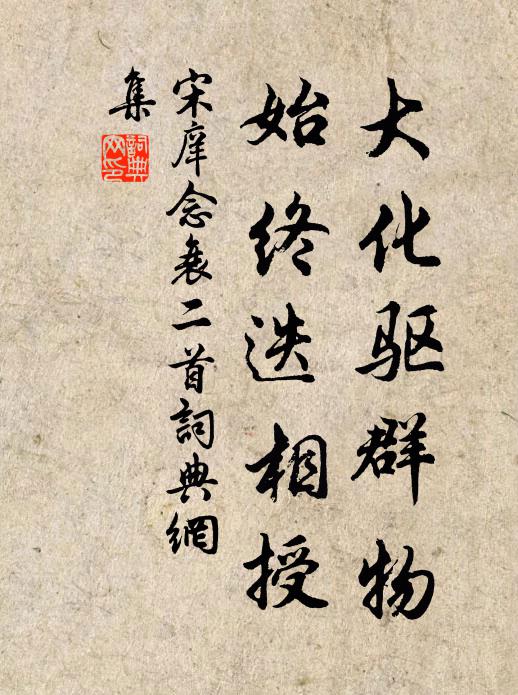 大化驱群物
始终迭相授
宋庠念衰二首詞典網
集
詞典
网印